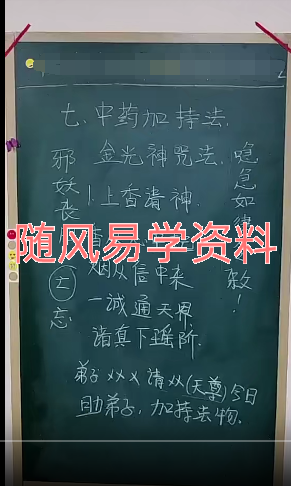 七、中药加持法.
金光神咒法.
1.上香清神.
随风易学资料
烟从信中来
一诚通天界,
诸真下瑶阶.
弟子×××请××(天尊)今日
助弟子,加持法物.
邪妖丧
亡
忘
急如律
敕!